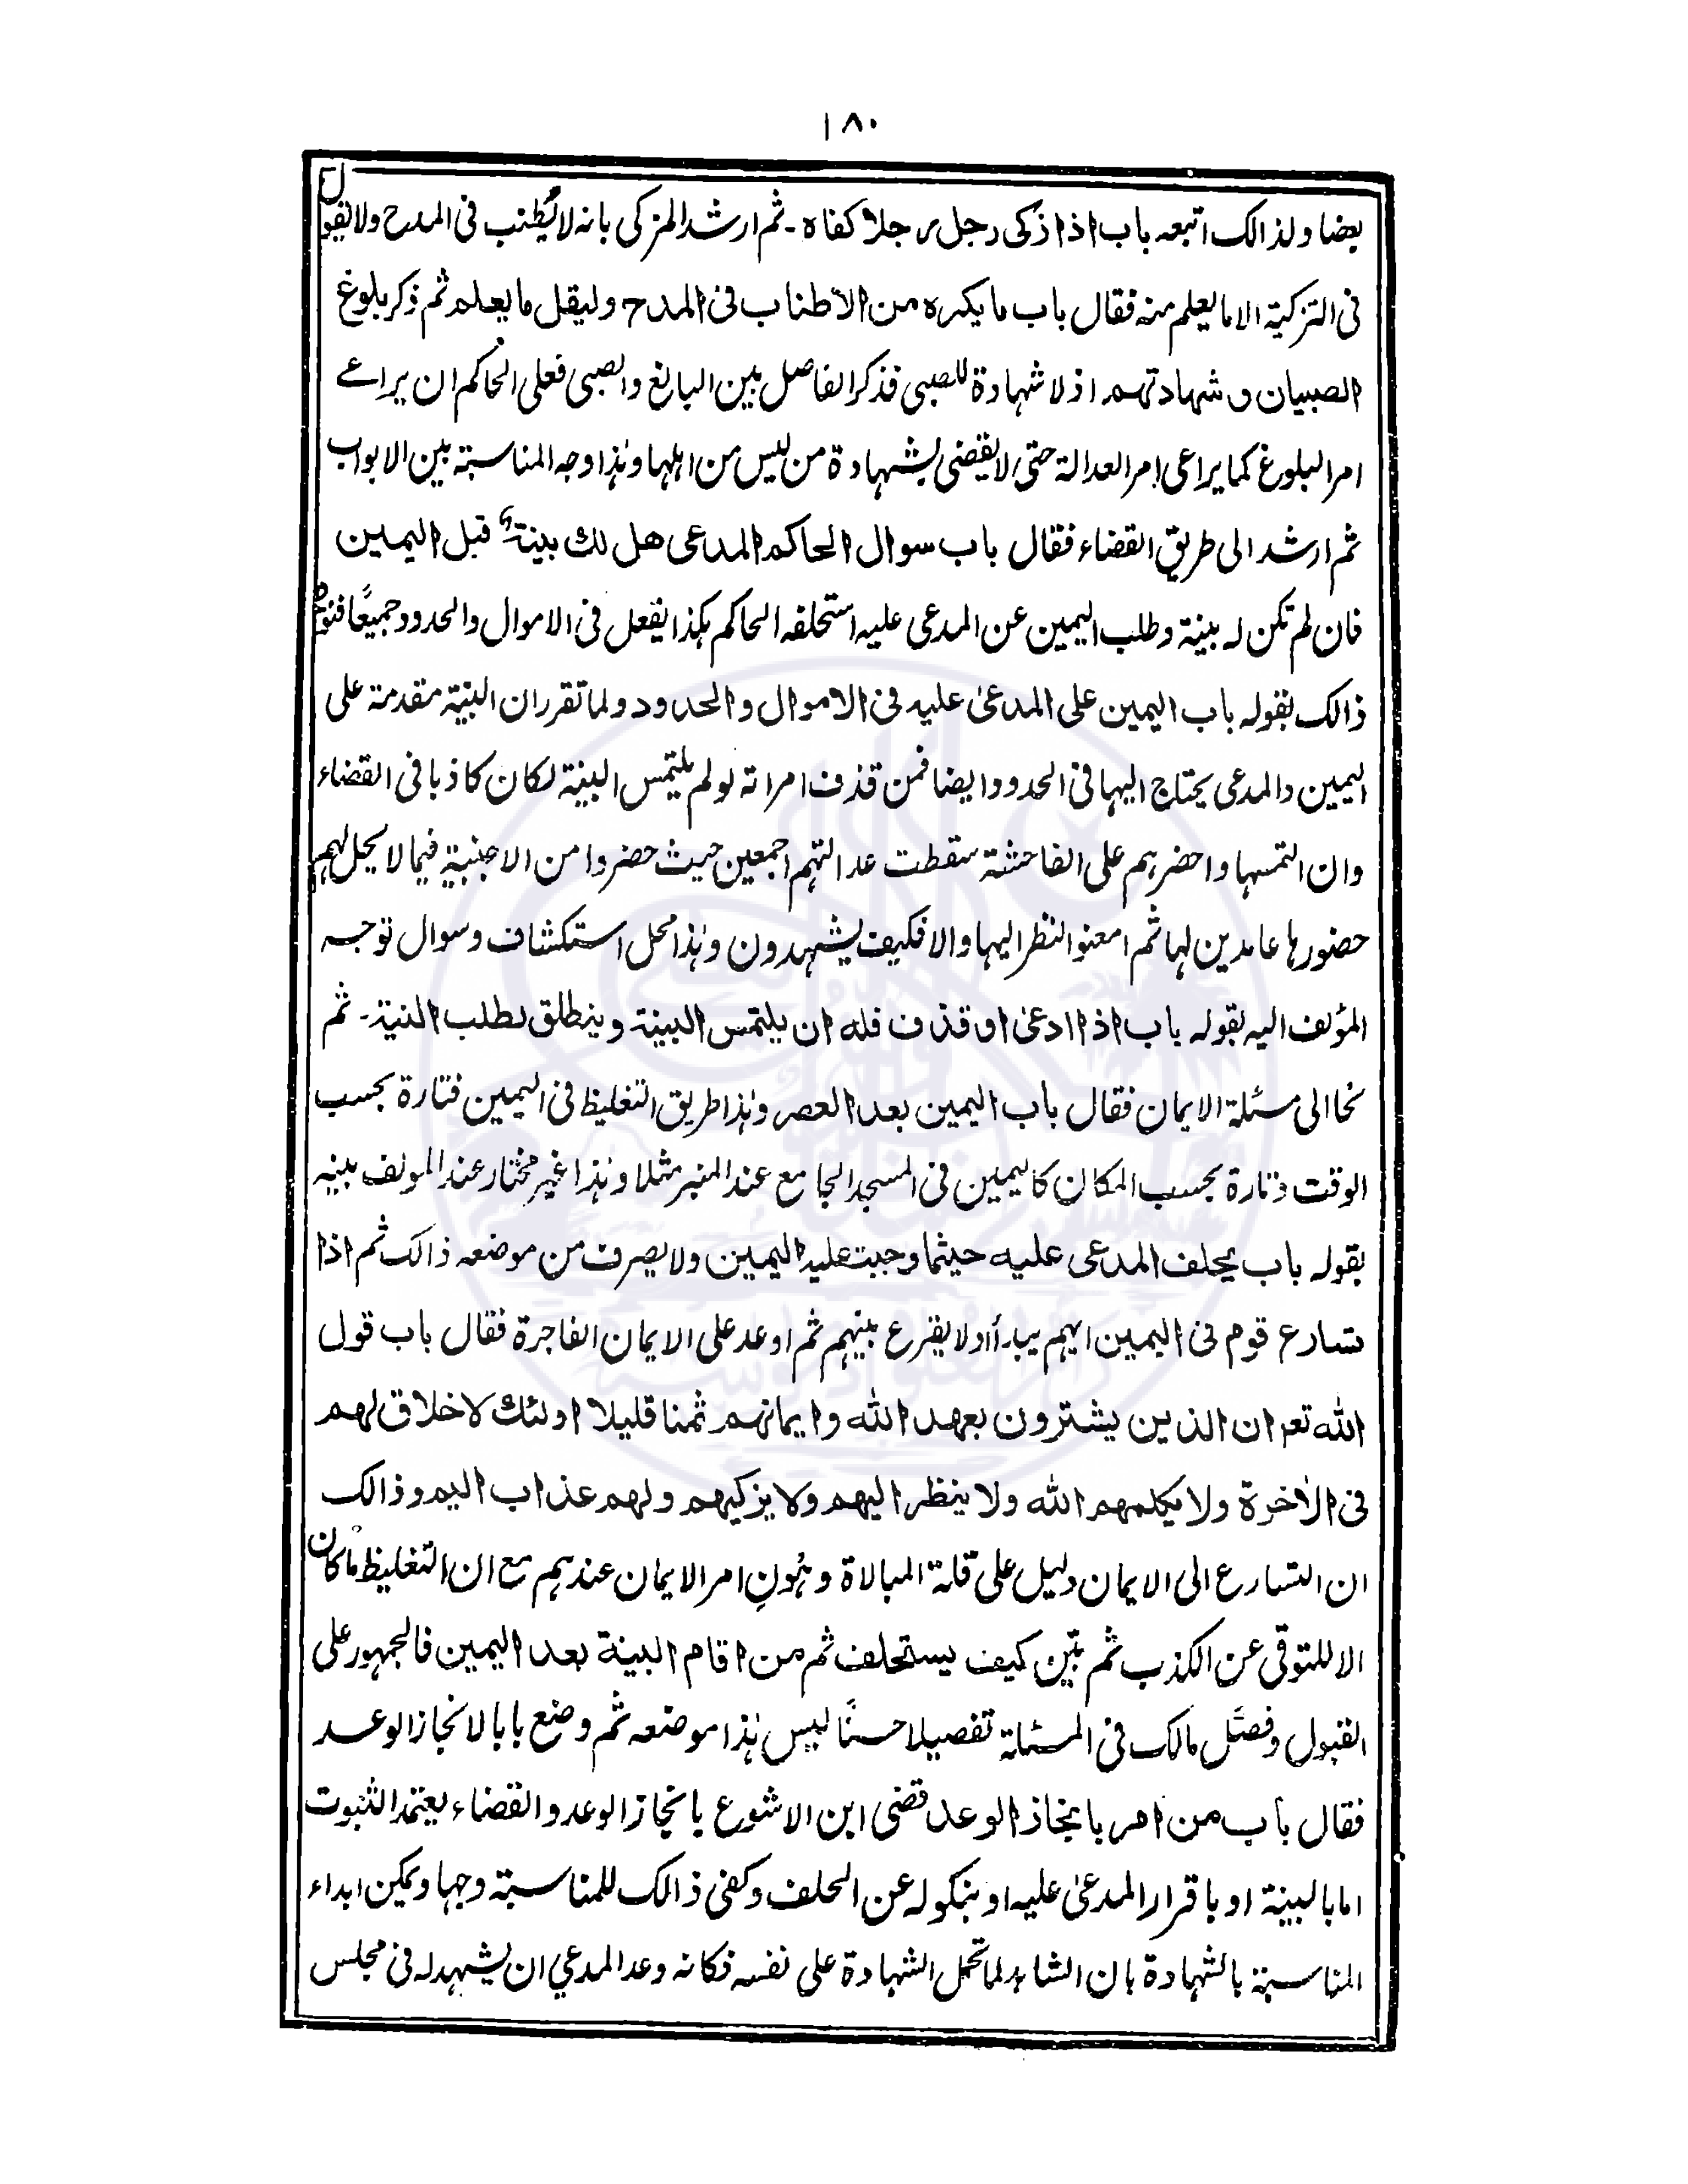 ١٨٠
بعضا ولذالك اتبعه باب اذا زكى رجل رجلا كفاه ـ ثم ارشد المزكى بانه لا يُطنب فى المدح ولا يقول
فى التزكية الا ما يعلم منه فقال باب ما يكره من الاطناب فى المدح وليقل ما يعلم ثم ذكر بلوغ
الصبيان وشهادتهم اذ لا شهادة للصبى فذكر الفاصل بين البالغ والصبى فعلى الحاكم ان يراعے
امر البلوغ كما يراعى امر العدالة حتى لا يقضى بشهادة من ليس من اهلها وهذا وجه المناسبة بين الابواب
ثم ارشد الى طريق القضاء فقال باب سوال الحاكم المدعى هل لك بينةٌ قبل اليمين
فان لم تكن له بينة وطلب اليمين عن المدعى عليه استحلفه الحاكم هكذا يفعل فى الاموال والحدود جميعًا فنوه
ذالك بقوله باب اليمين على المدعىٰ عليه فى الاموال والحدود ولما تقرر ان البنية مقدمة على
اليمين والمدعى يحتاج اليها فى الحدود وايضا فمن قذف امراته لو لم يلتمس البينة لكان كاذبا فى القضاء
وان التمسها واحضرهم على الفاحشة سقطت عدالتهم اجمعين حيث حضروا من الاجنبية فيما لا يحل لهم
حضورها عامدين لها ثم امعنوا النظر اليها والا فكيف يشهدون وهذا محل استكشاف وسوال توجه
المؤلف اليه بقوله باب اذا ادعىٰ او قذف فله ان يلتمس البينة وينطلق لطلب البنية ـ ثم
نحا الى مسئلة الايمان فقال باب اليمين بعد العصر وهذا طريق التغليظ فى اليمين فتارة بحسب
الوقت وتارة بحسب المكان كاليمين فى المسجد الجامع عند المنبر مثلا وهذا غير مختار عند المولف بينه
بقوله باب يحلف المدعى عليه حيثما وجبت عليه اليمين ولا يصرف من موضعه ذالك ثم اذا
تسارع قوم فى اليمين ايهم يبدأ اولا يقرع بينهم ثم اوعد على الايمان الفاجرة فقال باب قول
الله تعر ان الذين يشترون بعهد الله وايمانهم ثمنا قليلا اولئك لا خلاق لهم
فى الاٰخرة ولا يكلمهم الله ولا ينظر اليهم ولا يزكيهم ولهم عذاب اليم وذالك
ان التسارع الى الايمان دليل على قلة المبالاة وهُونِ امر الايمان عندهم مع ان التغليظ ما كان
الا للتوقى عن الكذب ثم بَيّن كيف يستحلف ثم من اقام البينة بعد اليمين فالجمهور على
القبول وفصَّل مالك فى المسئلة تفصيلا حسنًا ليس هذا موضعه ثم وضع بابا لانجاز الوعد
فقال باب من امر بانجاز الوعد قضى ابن الاشوع بانجاز الوعد والقضاء يعتمد الثبوت
اما بالبينة او باقرار المدعىٰ عليه او بنكوله عن الحلف وكفى ذالك للمناسبة وجها ويمكن ابداء
المناسبة بالشهادة بان الشاهد لما تحمل الشهادة على نفسه فكانه وعد المدعي ان يشهد له فى مجلس